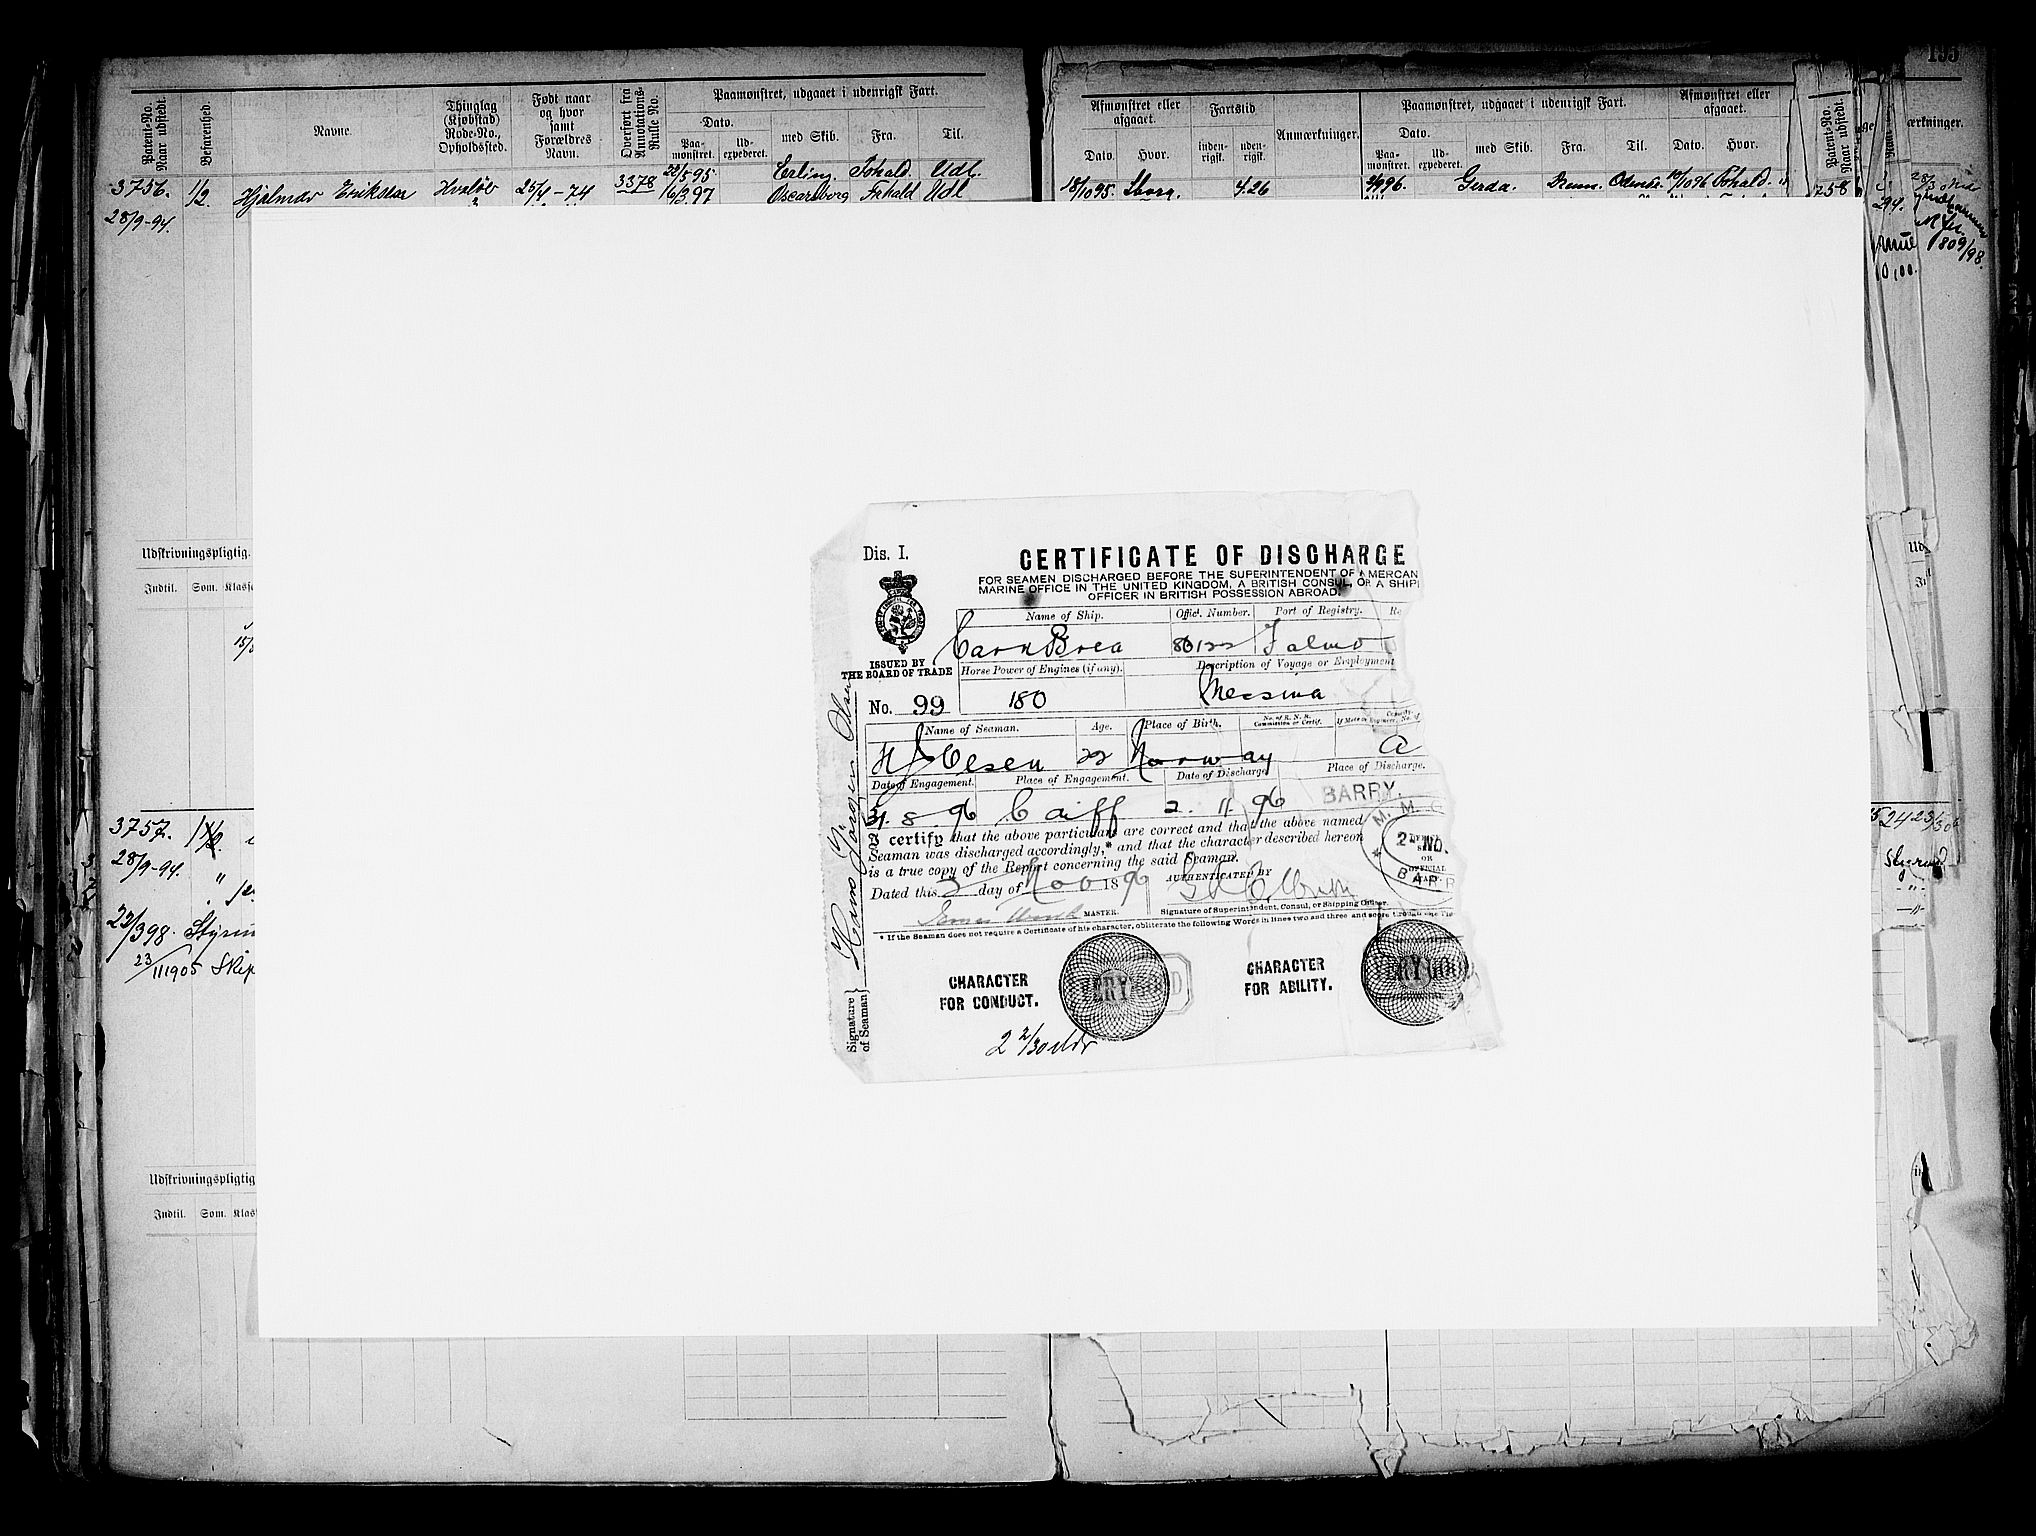 195
Patent-No. Naar udstedt.
Befarenhed.
Navne.
Thinglag (Kjøbstad) Rode-No., Opholdssted.
Født naar og hvor samt Forældres Navn.
Overført fra Annotations-Rulle No.
Paamønstret, udgaaet i udenrigsk Fart.
Dato.
Paa-mønstret.
Ud-expederet.
med Skib.
Fra.
Til.
Afmønstret eller afgaaet.
Dato.
Hvor.
Fartstid
inden-rigsk.
uden-rigsk.
Anmærkninger.
Paamønstret, udgaaet i udenrigsk Fart.
Dato.
Paa-mønstret.
Ud-expederet.
med Skib.
Fra.
Til.
Afmønstret eller afgaaet.
Dato.
Hvor.
Patent-No. Naar udstedt.
3756. 1/2 Hjalmar Eriksen Hvaløv 25/4-74 3378
28/9-94.
22/5 95. Erling. Fhald. Udl.
16/3 97 Oscarsborg Fhald Udl
18/10 95. Sborg. 4.26
Gerda. Dram. Odense. 10/10 96 Fhald.
Udskrivningspligtig.
Indtil. Som. Klasse
3757.
28/9-94.
23/3 98. Styrm
23/11 1905 Skip
Udskrivningspligtig
Indtil. Som. Klas
Dis. I.
CERTIFICATE OF DISCHARGE
FOR SEAMEN DISCHARGED BEFORE THE SUPERINTENDENT OF A MERCAN
MARINE OFFICE IN THE UNITED KINGDOM, A BRITISH CONSUL, OR A SHIPP
OFFICER IN BRITISH POSSESSION ABROAD.
ISSUED BY
THE BOARD OF TRADE
No. 99
Name of Ship. Officl. Number. Port of Registry. Re
Carn Brea 80122 Falmo
Horse Power of Engines (if any). Description of Voyage or Employment
180 Messina
Name of Seaman. Age. Place of Birth. No. of R. N. R. Commission or Certif. Capacity.
H J Olsen 22 Norway A
Date of Engagement. Place of Engagement. Date of Discharge Place of Discharge.
31. 8. 96 Caiff 2. 11 96 BARRY.
certify that the above particulars are correct and that the above named
Seaman was discharged accordingly,* and that the character described hereon
is a true copy of the Report concerning the said Seaman.
Dated this 2 day of Nov 1896 AUTHENTICATED BY
MASTER. Signature of Superintendent, Consul, or Shipping Officer.
* If the Seaman does not require a Certificate of his character, obliterate the following Words in lines two and three and score through the
M. M. O
2 NO.
BARR
CHARACTER
FOR CONDUCT.
VERY GOOD
CHARACTER
FOR ABILITY.
VERY GOOD
2 2/30 mdr
Signature of Seaman
Hans Jørgen Olsen